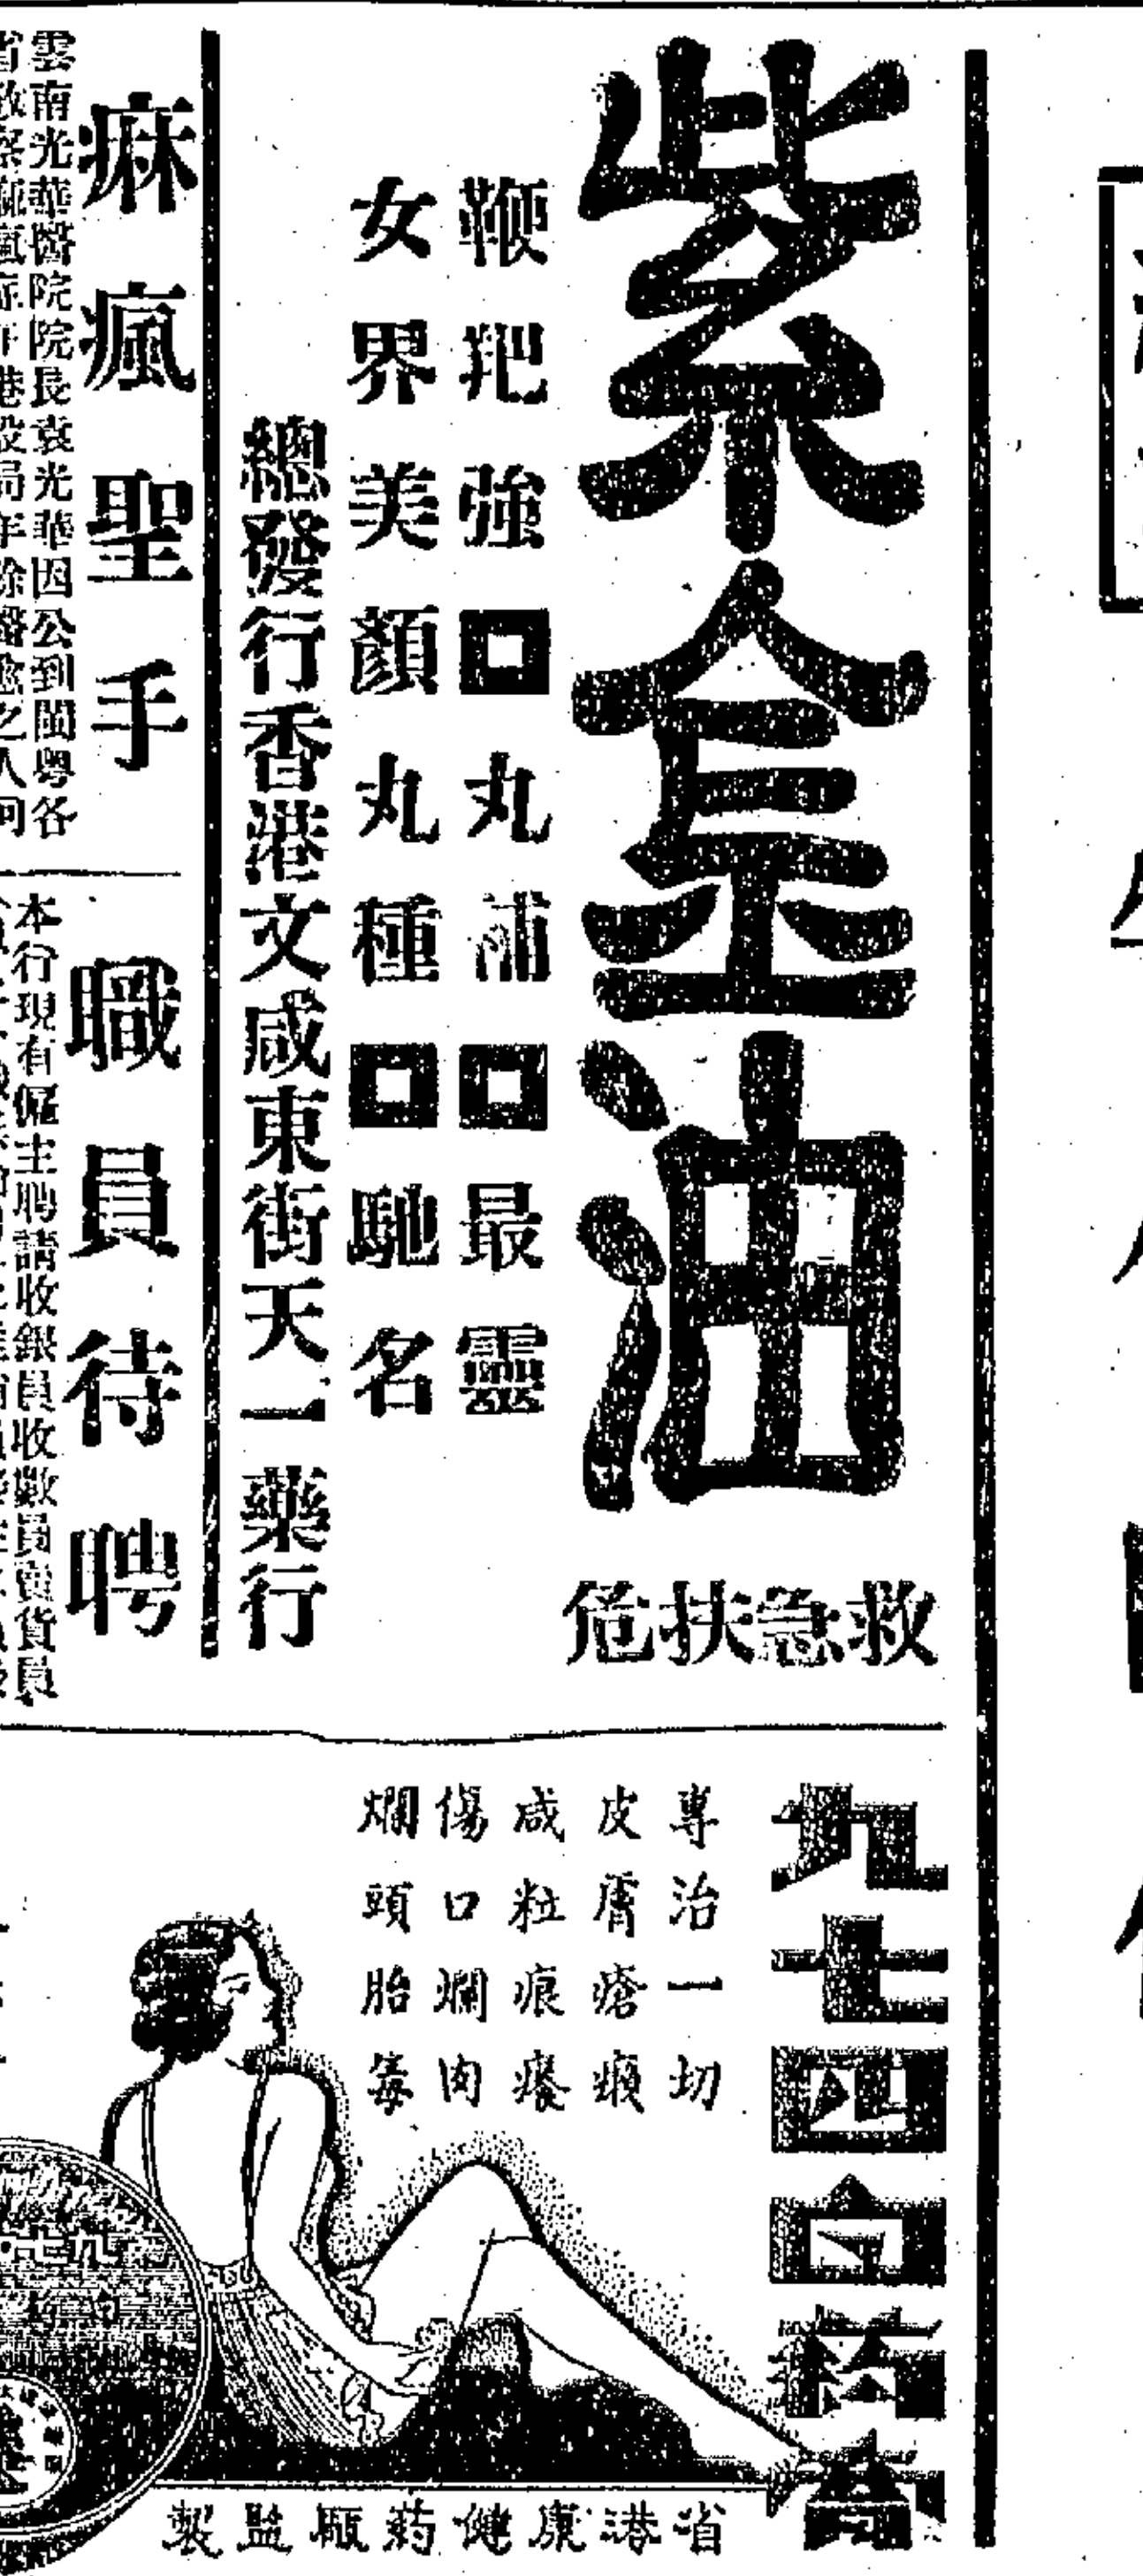 紫金油
救急扶危
鞭𦍑強□丸補□最靈
女界美顏丸種□馳名
總發行香港文咸東街天一藥行
痳瘋聖手
雲南光華醫院院長袁光華因公到閩粵各
職員待聘
本行現有僱主聘請收銀員收數員賣貨員
九七四白葯膏
專治一切
皮膚瘡癩
咸粒痕癢
傷口爛肉
爛頭胎毒
省港康健葯厰監製